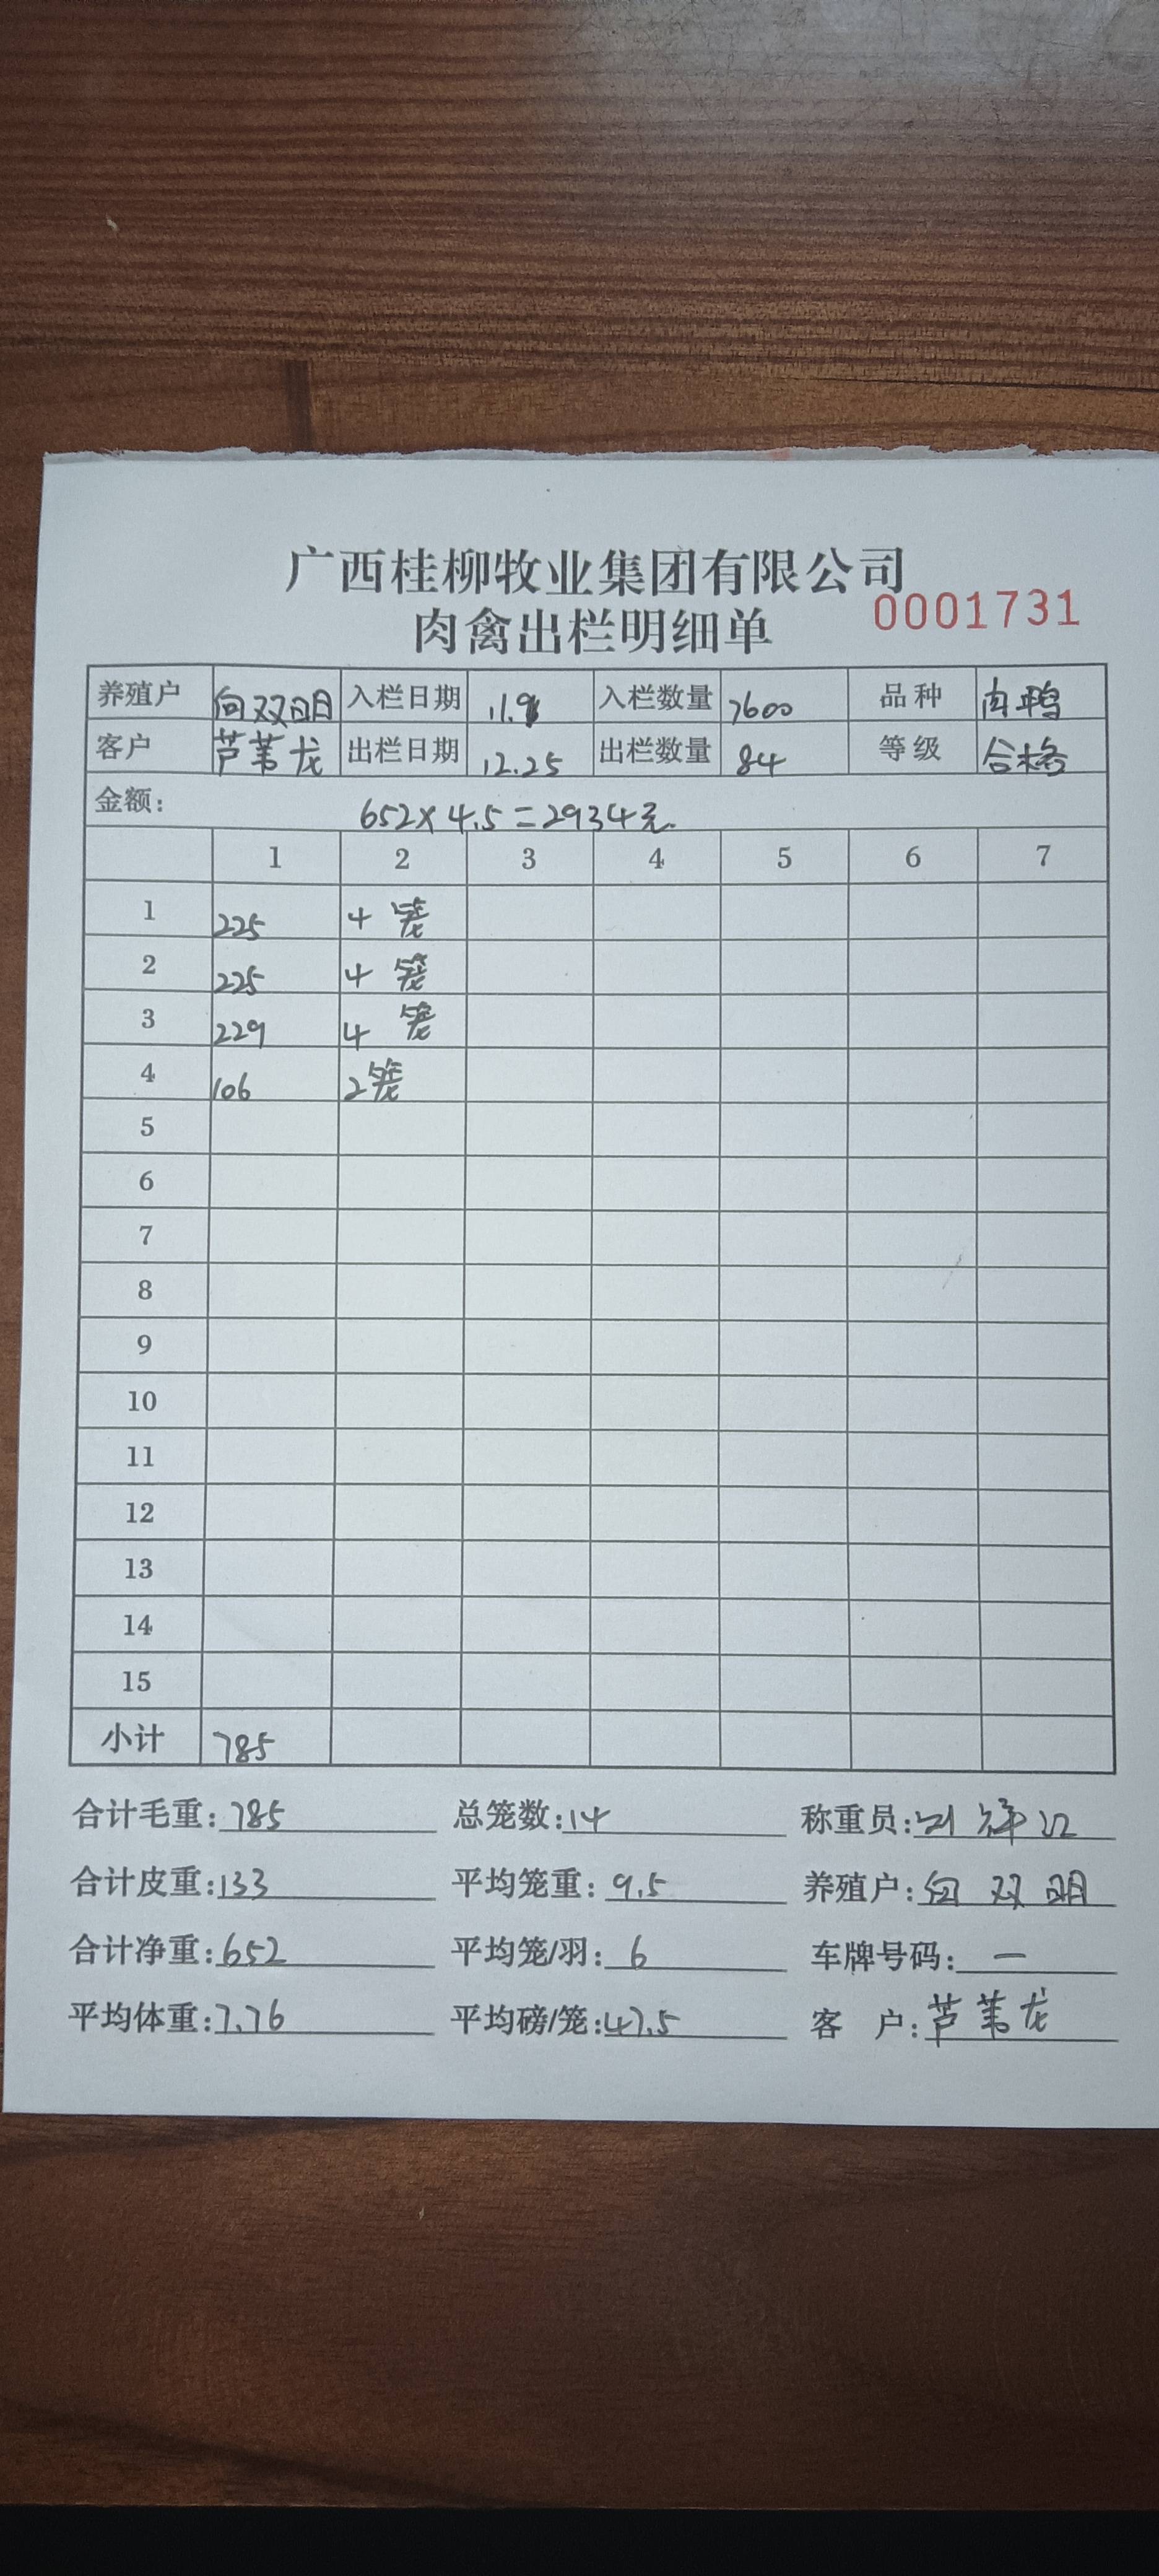 广西桂柳牧业集团有限公司
肉禽出栏明细单 0001731
养殖户 向双明 入栏日期 11.9 入栏数量 7600 品种 肉鸭
客户 芦苇龙 出栏日期 12.25 出栏数量 84 等级 合格
金额: 652×4.5=2934元
1 2 3 4 5 6 7
1 225 4笼
2 225 4笼
3 229 4笼
4 106 2笼
5
6
7
8
9
10
11
12
13
14
15
小计 785
合计毛重:785 总笼数:14 称重员:
合计皮重:133 平均笼重:9.5 养殖户:向双明
合计净重:652 平均笼/羽:6 车牌号码:一
平均体重:7.76 平均磅/笼:47.5 客户:芦苇龙